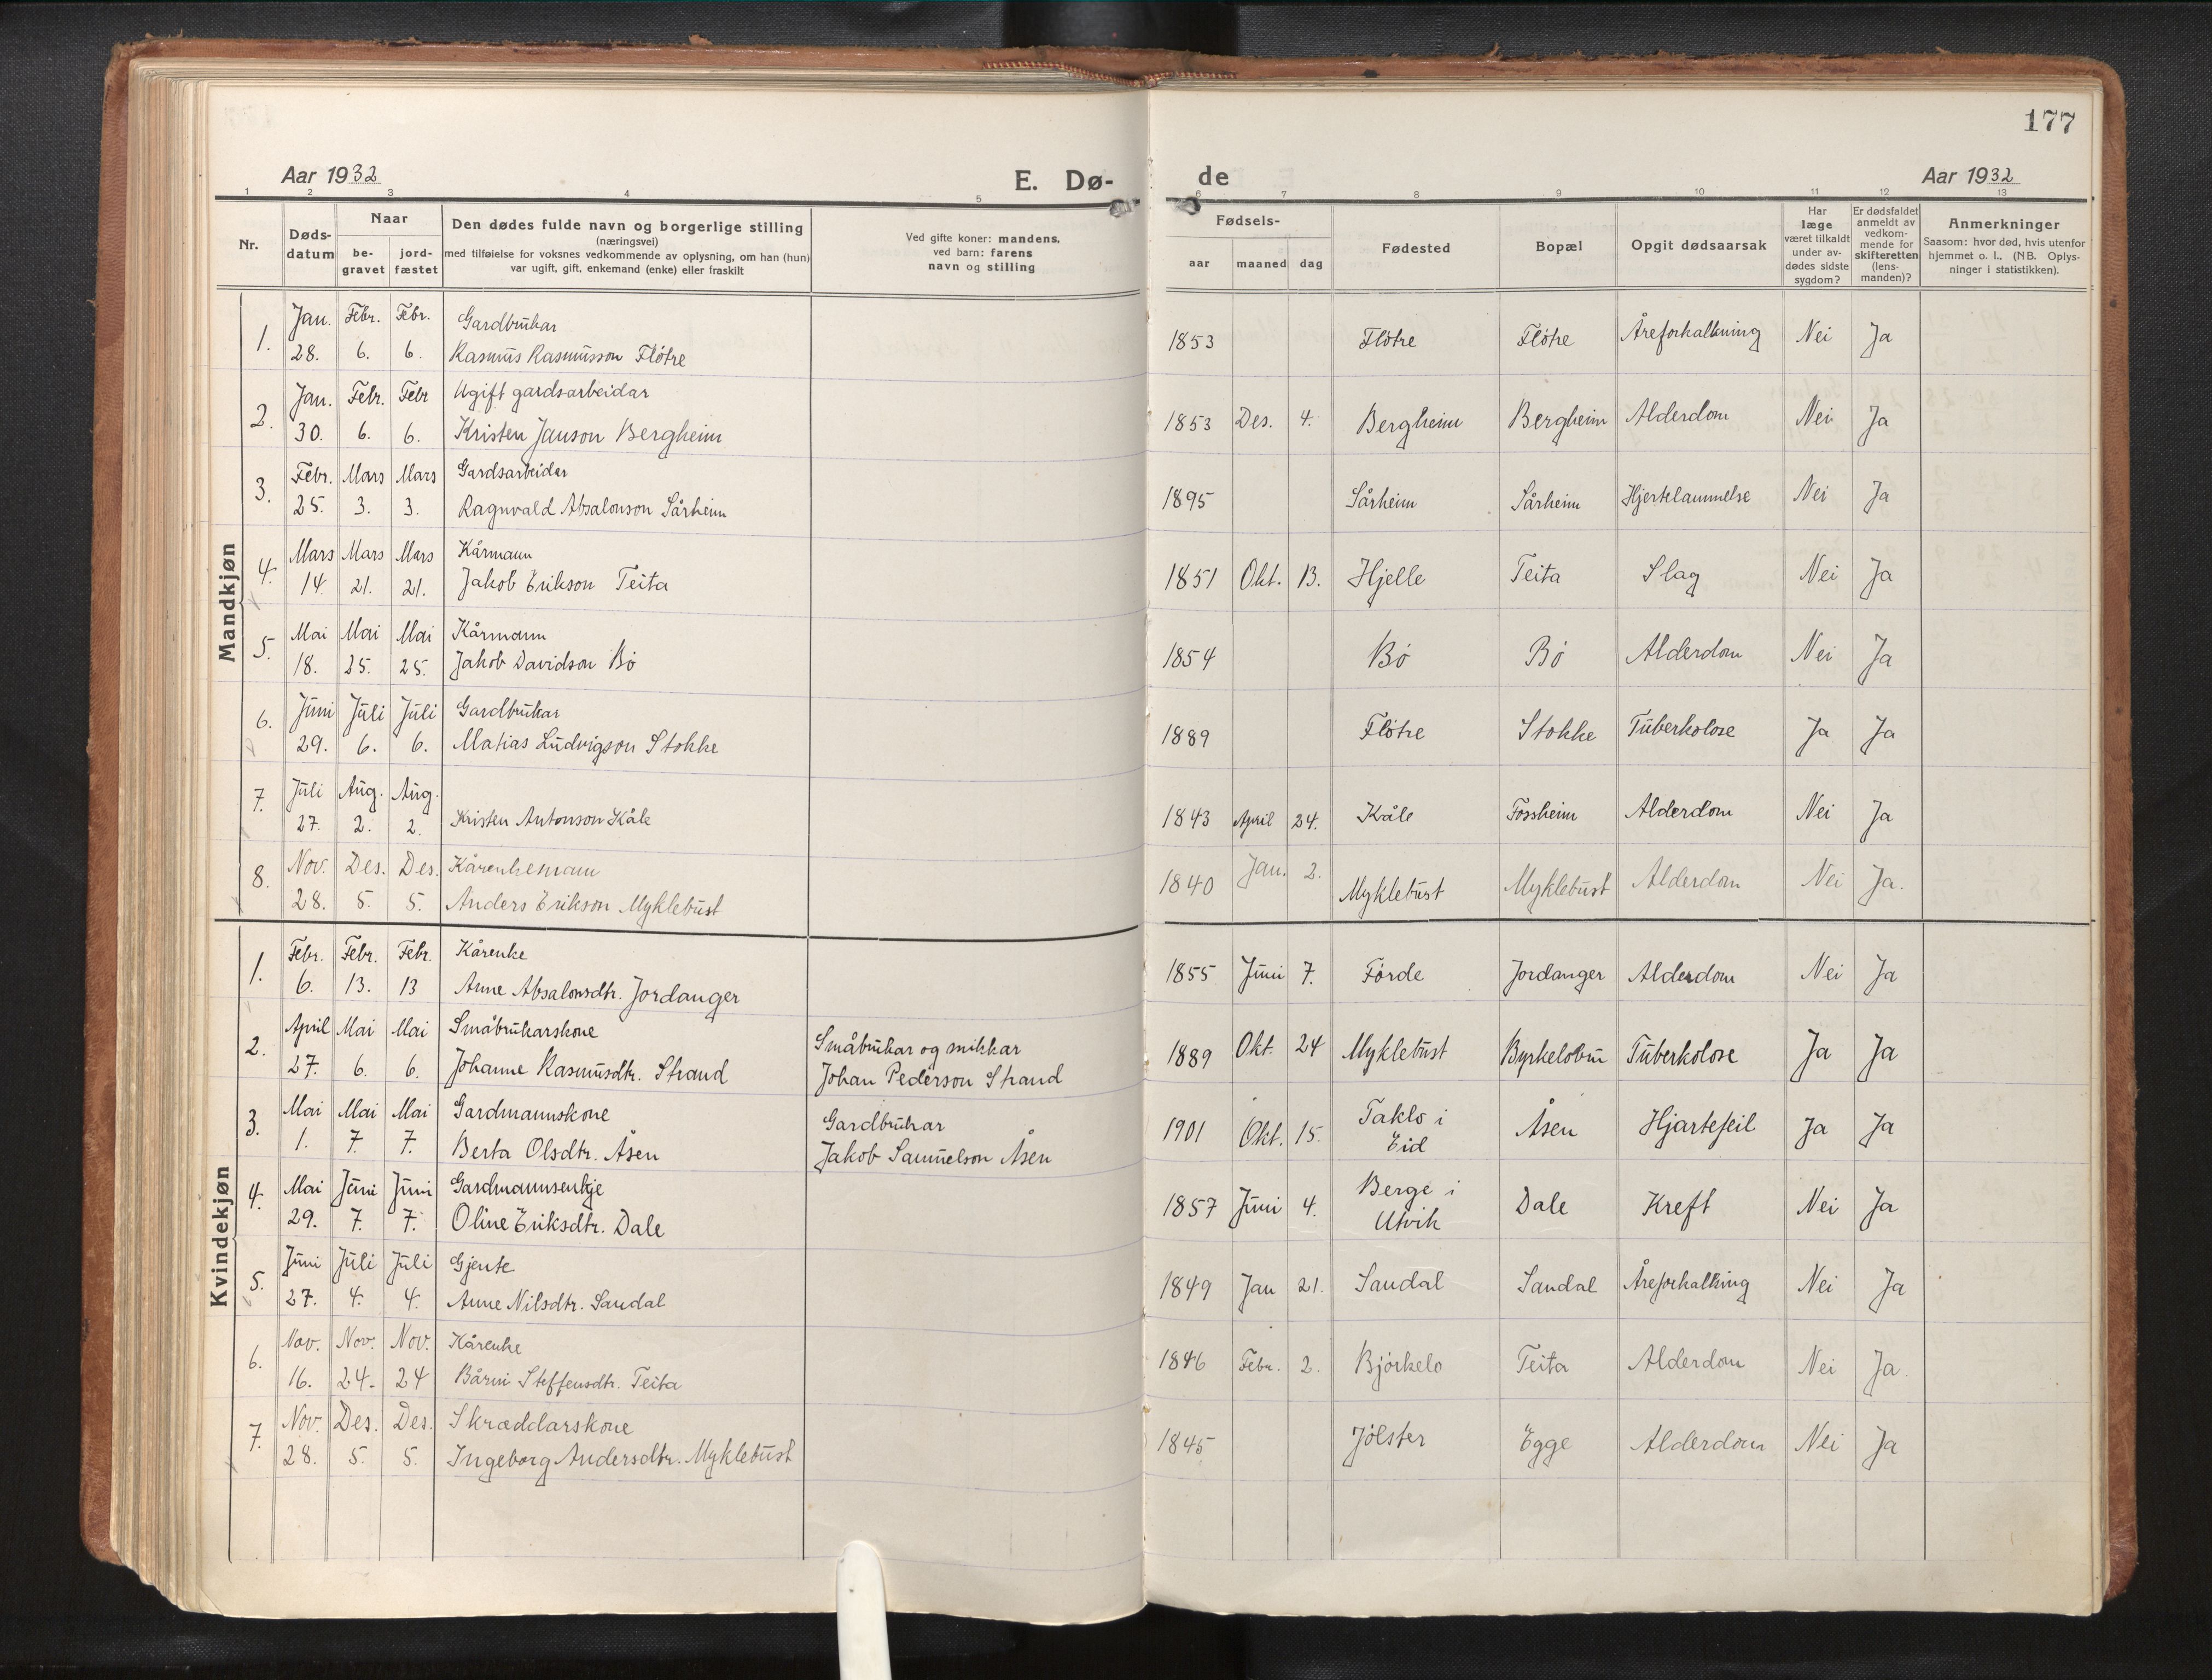 177
Aar 1932 E. Dø- de Aar 1932
1 2 3 4 5 6 7 8 9 10 11 12 13
Nr.
Døds-
datum
Naar
be-
gravet
jord-
fæstet
Den dødes fulde navn og borgerlige stilling
(næringsvei)
med tilføielse for voksnes vedkommende av oplysning, om han (hun)
var ugift, gift, enkemand (enke) eller fraskilt
Ved gifte koner: mandens,
ved barn: farens
navn og stilling
Fødsels-
aar maaned dag
Fødested
Bopæl
Opgit dødsaarsak
Har
læge
været tilkaldt
under av-
dødes sidste
sygdom?
Er dødsfaldet
anmeldt av
vedkom-
mende for
skifteretten
(lens-
manden)?
Anmerkninger
Saasom: hvor død, hvis utenfor
hjemmet o. l., (NB. Oplys-
ninger i statistikken).
Mandkjøn
1. Jan. Febr. Febr. Gardbrukar
28. 6. 6. Rasmus Rasmusson Flötre 1853 Flötre Flötre Åreforkalkning Nei Ja
2. Jan. Febr. Febr Ugift gardsarbeidar
30. 6. 6. Kristen Janson Bergheim 1853 Des. 4. Bergheim Bergheim Alderdom Nei Ja
3. Febr. Mars Mars Gardsarbeidar
25. 3. 3. Ragnvald Absalonson Sårheim 1895 Sårheim Sårheim Hjertelammelse Nei Ja
4. Mars Mars Mars Kårmann
14. 21. 21. Jakob Erikson Teita 1851 Okt. 13. Hjelle Teita Slag Nei Ja
5. Mai Mai Mai Kårmann
18. 25. 25. Jakob Davidson Bö 1854 Bö Bö Alderdom Nei Ja
6. Juni Juli Juli Gardbrukar
29. 6. 6. Matias Ludvigson Stokke 1889 Flötre Stokke Tuberkolose Ja Ja
7. Juli Aug. Aug.
27. 2. 2. Kristen Antonson Kåle 1843 April 24. Kåle Fossheim Alderdom Nei Ja
8. Nov. Des. Des. Kårenkemann
28. 5. 5. Anders Erikson Myklebust 1840 Jan. 2. Myklebust Myklebust Alderdom Nei Ja.
Kvindekjøn
1. Febr. Febr. Febr. Kårenke
6. 13. 13 Anne Absalonsdtr. Jordanger 1855 Juni 7. Förde Jordanger Alderdom Nei Ja
2. April Mai Mai Småbrukarskone Småbrukar og snikkar
27. 6. 6. Johanne Rasmusdtr. Strand Johan Pederson Strand 1889 Okt. 24 Myklebust Byrkelobru Tuberkolose Ja Ja
3. Mai Mai Mai Gardmannskone Gardbrukar
1. 7. 7. Berta Olsdtr. Åsen Jakob Samuelson Åsen 1901 Okt. 15. Taklo i
Eid Åsen Hjartefeil Ja Ja
4. Mai Juni Juni Gardmannsenkje
29. 7. 7. Oline Eriksdtr. Dale 1857 Juni 4. Berge i
Utvik Dale Kreft Nei Ja
5. Juni Juli Juli Gjente
27. 4. 4. Anne Nilsdtr. Sandal 1849 Jan 21. Sandal Sandal Åreforkalking Nei Ja
6. Nov. Nov. Nov. Kårenke
16. 24. 24 Bårni Steffensdtr. Teita 1846 Febr. 2. Björkelo Teita Alderdom Nei Ja.
7. Nov. Des. Des. Skræddarskone
28. 5. 5. Ingeborg Andersdtr. Myklebust 1845 Jölster Egge Alderdom Nei Ja